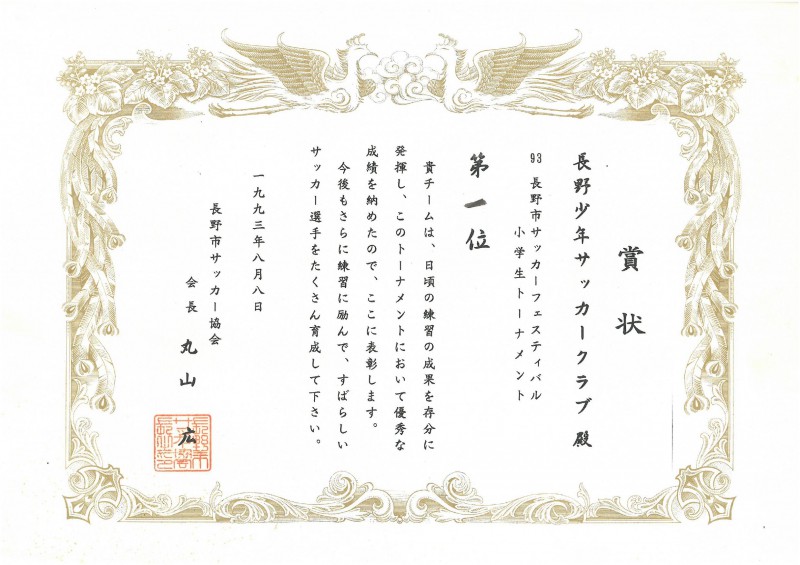 賞状
長野少年サッカークラブ殿
93 長野市サッカーフェスティバル
小学生トーナメント
第一位
貴チームは、日頃の練習の成果を存分に
発揮し、このトーナメントにおいて優秀な
成績を納めたので、ここに表彰します。
今後もさらに練習に励んで、すばらしい
サッカー選手をたくさん育成して下さい。
一九九三年八月八日
長野市サッカー協会
会長 丸山 広